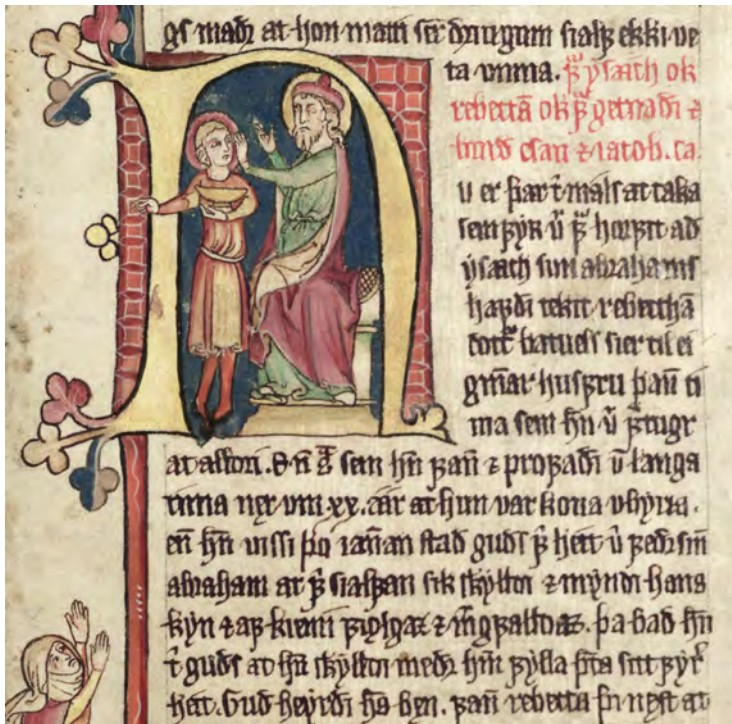 gs madꝛ at hon ser driugum sialf ekki ve
ta vinna. f͛ ysaach ok
rebecca ok f͛ getnadi ⁊
burd esau ⁊ iacob. ca.
u er þar t̄ mals at taka
sem fyrr ū f͛ horfit ad
ysaach sun abrahams
hafdi tekit rebeccha
dott͛ batuels sier til ei
ginnar husfru þan̄ ti
ma sem hn̄ ū fertugr
at alldri. sem hn̄ fan̄ ⁊ profadi ū langa
tima nęr xx. aar at hun var kona vbyria.
en̄ hn̄ uissi þo iafnan stad guds heit ū fedr sin̄
abraham at f͛ sialfan sik skylldi ⁊ myndi hans
kyn ⁊ af kuemi fiolgaz ⁊ m̄gfalldaz. þa bad hn̄
t̄ guds at hn̄ skylldi medꝛ hn̄ fylla þ̄ta sitt fyr͛
heit. Gud heyrdi hs̄ ben. fan̄ rebecca nest at